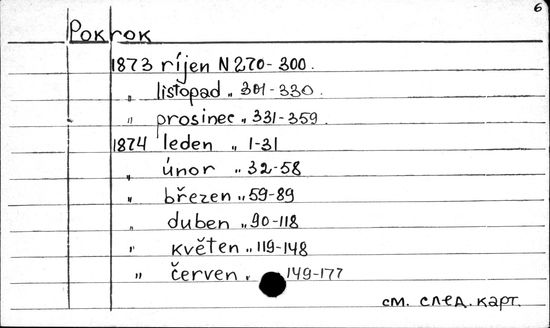 6
Pokrok
1873 ríjen N 270-300.
„ listopad „ 301-330.
„ prosinec „ 331-359.
1874 leden „ 1-31
„ únor „ 32-58
„ březen „ 59-89
„ duben „ 90-118
„ květen „ 119-148
„ červen „ 149-177
см. след. карт.